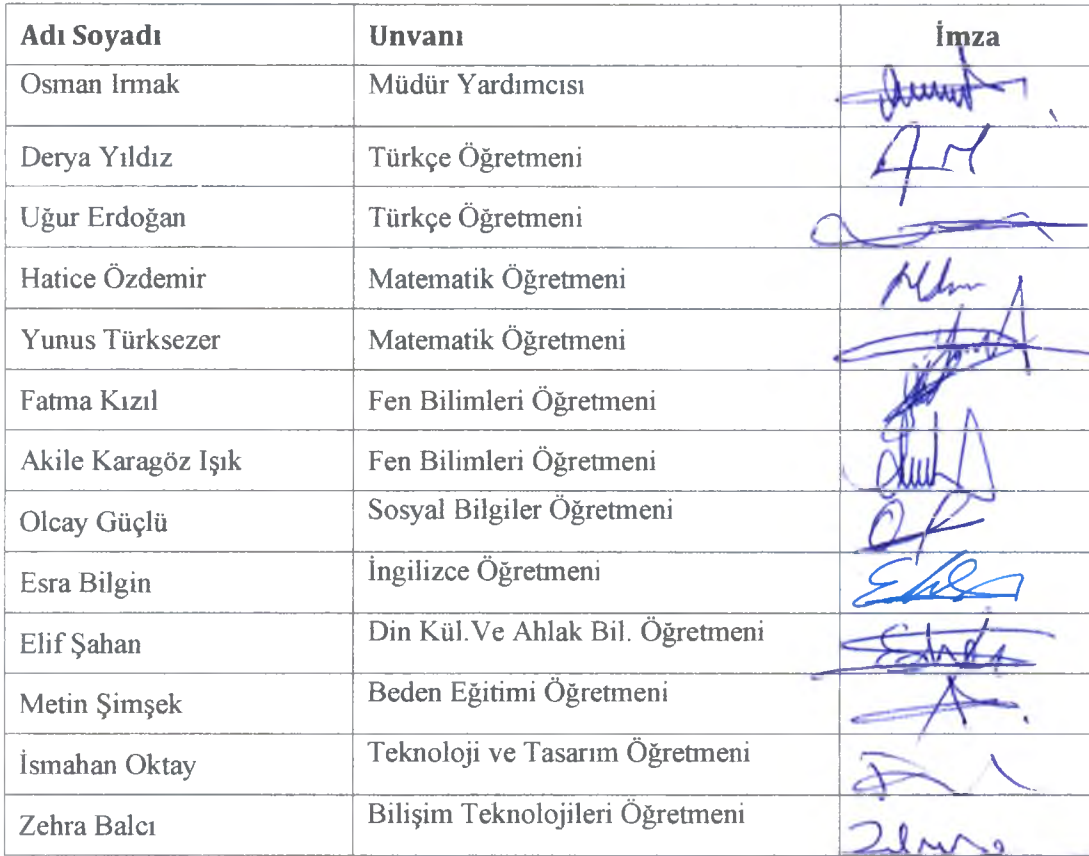 Adı Soyadı Unvanı İmza
Osman Irmak Müdür Yardımcısı
Derya Yıldız Türkçe Öğretmeni
Uğur Erdoğan Türkçe Öğretmeni
Hatice Özdemir Matematik Öğretmeni
Yunus Türksezer Matematik Öğretmeni
Fatma Kızıl Fen Bilimleri Öğretmeni
Akile Karagöz Işık Fen Bilimleri Öğretmeni
Olcay Güçlü Sosyal Bilgiler Öğretmeni
Esra Bilgin İngilizce Öğretmeni
Elif Şahan Din Kül.Ve Ahlak Bil. Öğretmeni
Metin Şimşek Beden Eğitimi Öğretmeni
İsmahan Oktay Teknoloji ve Tasarım Öğretmeni
Zehra Balcı Bilişim Teknolojileri Öğretmeni